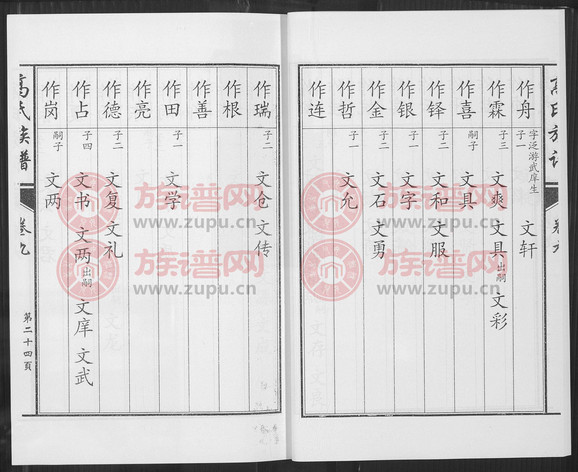 高氏族谱 卷九
作舟 字泛游武庠生 子一 文轩
作霖 子三 文爽 文具 出嗣 文彩
作喜 嗣子 文具
作铎 子二 文和 文服
作银 子一 文字
作金 子二 文石 文勇
作哲 子一 文允
作连
作瑞 子二 文仓 文传
作根
作善
作田 子一 文学
作亮
作德 子二 文复 文礼
作占 子四 文书 文两 出嗣 文庠 文武
作岗 嗣子 文两
高氏族谱 卷九 第二十四頁
族谱网
www.zupu.cn
族谱网
www.zupu.cn
族谱网
www.zupu.cn
族谱网
www.zupu.cn